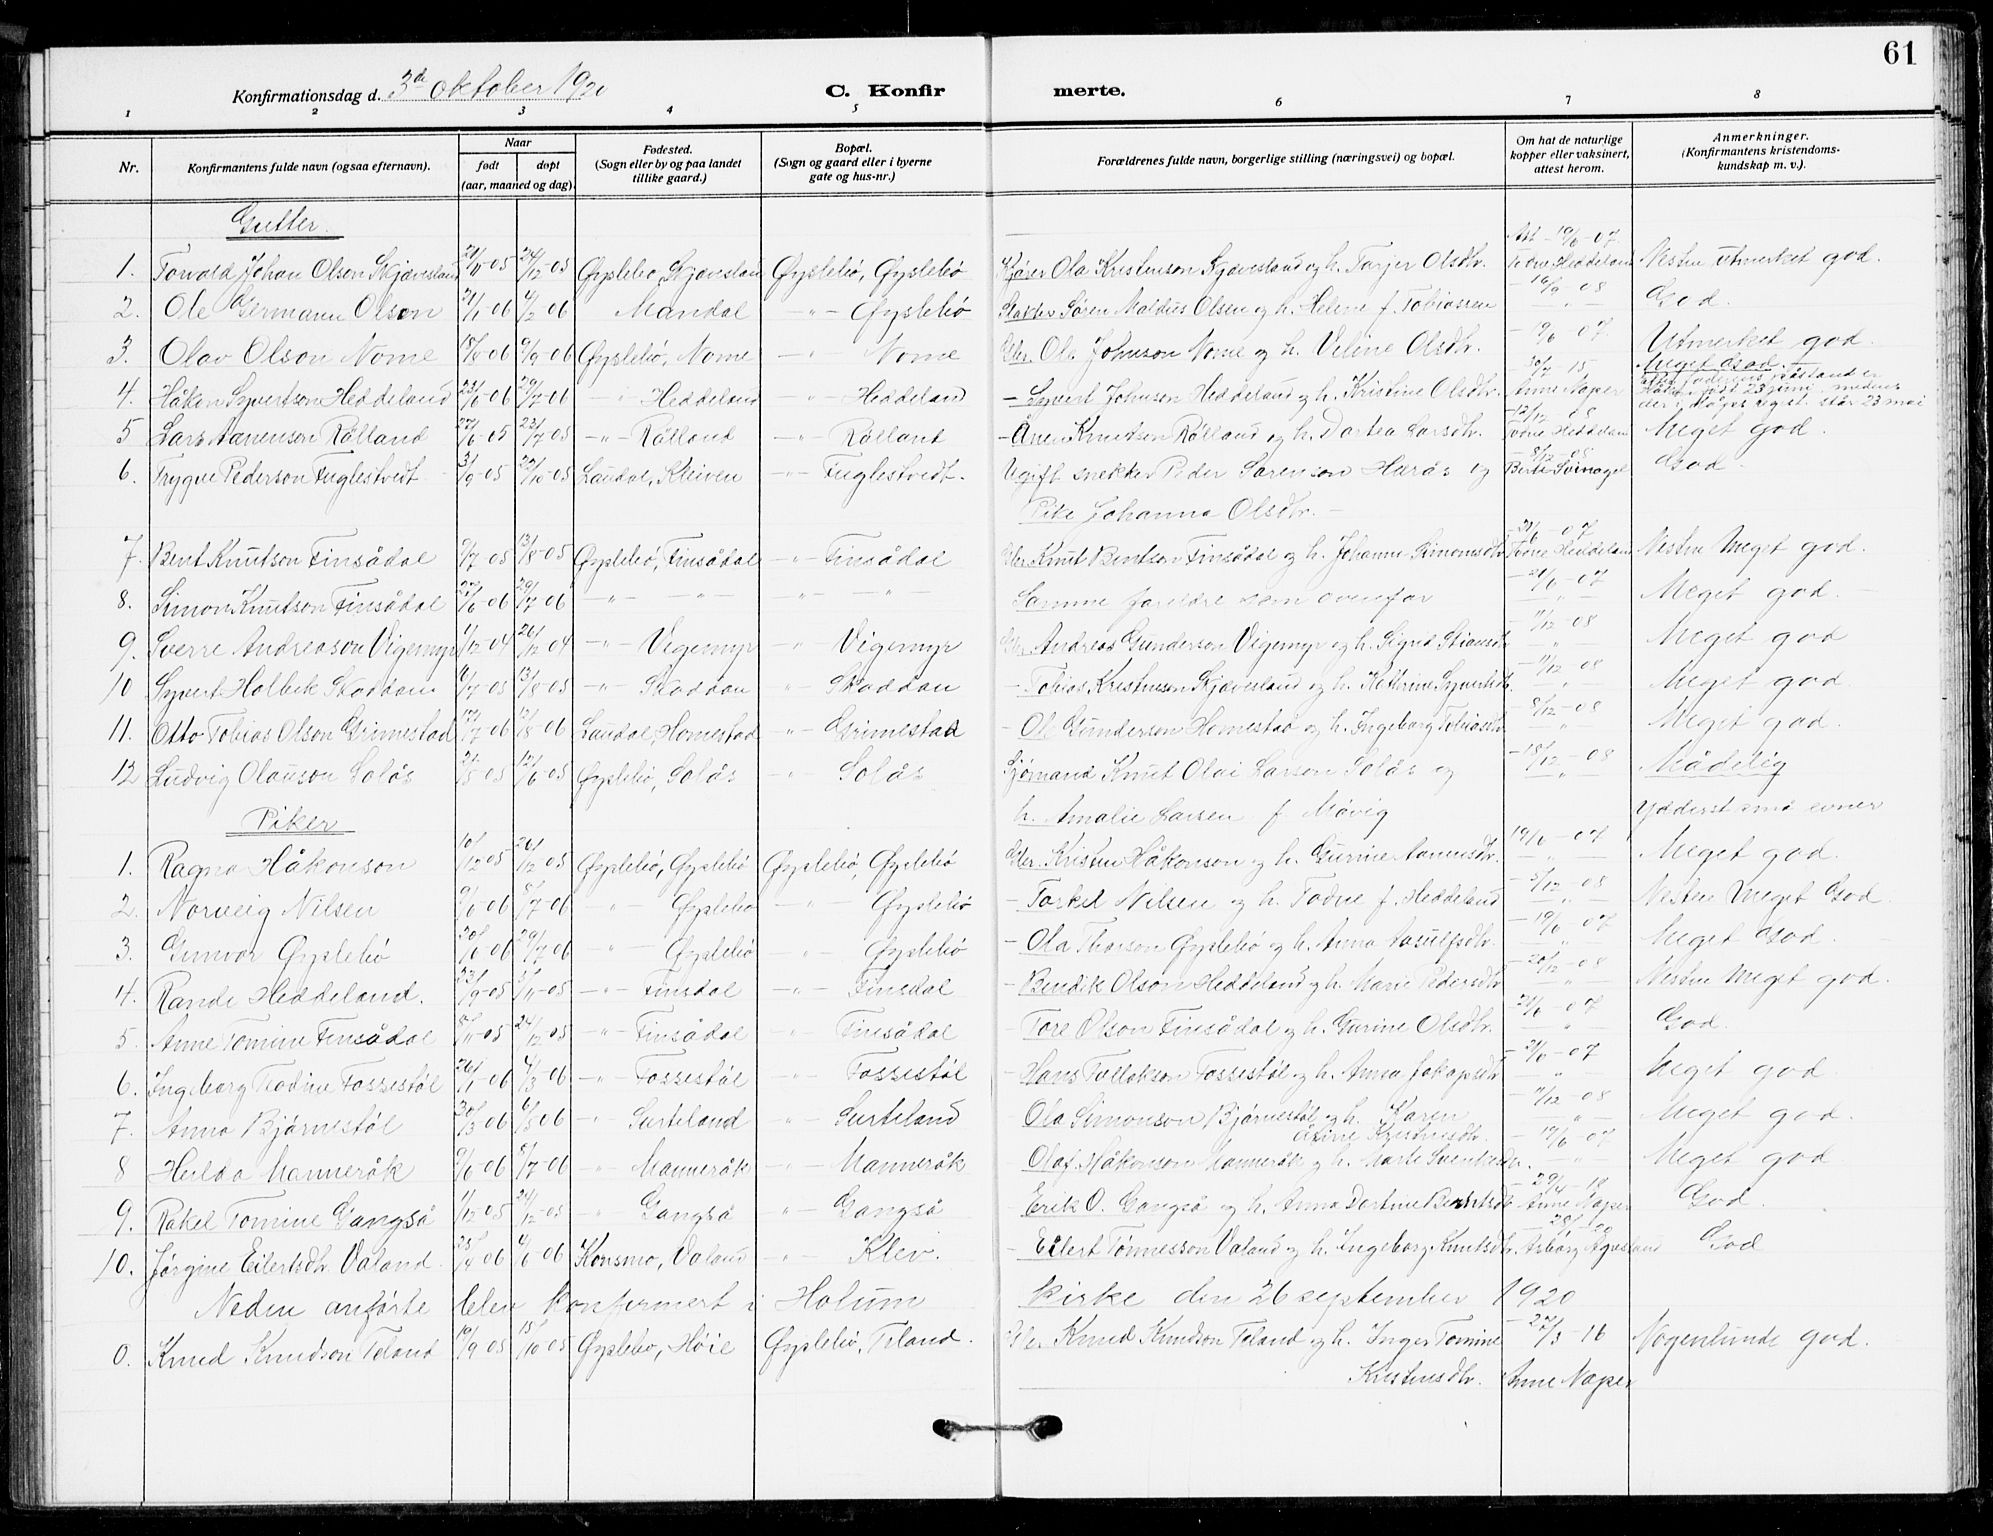 61
Konfirmationsdag d. 3de oktober 1920 C. Konfirmerte.
1 2 3 4 5 6 7 8
Nr. Konfirmantens fulde navn (ogsaa efternavn). Naar født døpt (aar, maaned og dag). Fødested. (Sogn eller by og paa landet tillike gaard.) Bopæl. (Sogn og gaard eller i byerne gate og hus-nr.) Forældrenes fulde navn, borgerlige stilling (næringsvei) og bopæl. Om hat de naturlige kopper eller vaksinert, attest herom. Anmerkninger. (Konfirmantens kristendomskundskap m. v.).
Gutter.
1. Torvald Johan Olson Skjævesland 24/12-05 Øyslebø, Skjævesland Øyslebø, Øyslebø Ola Kristenson Skjævesland og h. Tarjer Olsdtr. Todne Heddeland Nesten utmerket god.
2. Ole Germann Olson 4/2 06 Mandal -"- Øyslebø Søren Maldius Olsen og h. Helene f. Tobiassen 08 God.
3. Olav Olson Nome Øyslebø, Nome -"- Nome Gbr. Ole Johnson Nome og h. Veline Olsdtr. -19/6-07 Utmerket god.
4. Håken Syvertson Heddeland 23/6 06 29/7-06 -"- Heddeland -"- Heddeland - Syvert Johnson Heddeland og h. Kristine Olsdtr. 30/7-15 Anne Naper Meget God
23 juni, medens der i dåpsreg. st. står 23 mai
5 Lars Aanenson Rølland 05 -"- Rølland -"- Rølland - Ånen Knutson Rølland og h. Dortea Larsdtr. 12/12-08 Todne Heddeland Meget god.
6. Trygve Pederson Fuglestvedt 05 Laudal, Kleiven -"- Fuglestvedt. Ugift snekker Peder Sørenson Haraas og -8/12-08 Berte Svinagel God.
Pike Johanna Olsdtr. -
7. Bent Knutson Finsådal 9/7-05 13/8-05 Øyslebø, Finsådal -"- Finsådal Gbr Knut Bentson Finsådal og h. Johanne Simonsdtr. -21/6-07 Todne Heddeland Nesten Meget god.
8. Simon Knutson Finsådal 06 29/7 06 -"- -"- -"- -"- Samme foreldre som ovenfor -21/6-07 Meget god.
9. Sverre Andreason Vigemyr 1/12-04 26/12 04 -"- Vigemyr -"- Vigemyr Gbr. Andreas Gunderson Vigemyr og h. Sigrid Stiansdtr -11/12-08 Meget god
10 Syvert Holbek Skoddan 9/7-05 13/8-05 -"- Skoddan " Skoddan - Tobias Kristenson Skjævesland og h. Kathrine Syvertsdtr. -11/12 08 Meget god
11. Otto Tobias Olson Grimestad 17/7 06 12/8 06 Laudal, Homestad -"- Grimestad - Ole Gunderson Homestad og h. Ingeborg Tobiasdtr 8/12-08 Meget god.
12 Ludvig Olauson Solås 05 05 Øyslebø, Solås -"- Solås Sjømand Knut Olai Larson Solås og -18/12-08 Mådelig
h. Amalie Larsen f. Møvig Ydderst små evner
Piker
1. Ragna Håkonson 10/12 05 26/12 05 Øyslebø, Øyslebø Øyslebø, Øyslebø Gbr. Kristen Håkonson og h. Gurine Aanensdtr. 19/6-07 Meget god.
2. Norveig Nilsen 9/6-06 8/7-06 -"- Øyslebø -"- Øyslebø - Torkel Nilsen og h. Todne f. Heddeland -5/12-08 Nesten Meget God
3. Gunvor Øyslebø 06 29/7 06 -"- Øyslebø -"- Øyslebø - Ola Thorson Øyslebø og h. Anna Asulfsdtr. -19/6-07 Meget God.
4. Rande Heddeland. 23/9-05 5/11-05 -"- Finsdal -"- Finsdal - Bendik Olson Heddeland og h. Marie Pedersdtr -20/12-08 Nesten Meget god.
5. Anne Tomine Finsådal 11-05 24/12 05 -"- Finsådal -"- Finsådal - Tore Olson Finsådal og h. Gurine Olsdtr. 21/6-07 God.
6. Ingeborg Todine Fossestøl 26/1 06 4/3 06 -"- Fossestøl -"- Fossestøl - Hans Tellekson Fossestøl og h. Anna Jakopsdtr -21/6-07 Meget god.
7. Anna Bjørnestøl 30/3 06 6/5 06 -"- Surteland -"- Surteland - Ola Simonson Bjørnestøl og h. Karen -11/12-08 Meget god.
Kristensdtr.
8 Hulda Manneråk 9/6-06 8/7-06 -"- Manneråk -"- Manneråk - Olaf Håkonson Manneråk og h. Marte -19/6-07 Meget god
9. Rakel Tomine Gangså 1/12-05 24/12-05 -"- Gangså " Gangså - Erik O. Gangså og h. Anna Dortine Berntsdtr -29/4-18 Anne Naper God.
10. Jørgine Eilertsdtr. Valand 25/4 06 4/6 06 Konsmo, Valand -"- Klev. - Eilert Tønnesson Valand og h. Ingeborg Knutsdtr. Asborg God
Neden anførte blev konfirmert i Holum kirke den 26 september 1920
0. Knud Knudson Teland 19/9 05 15/10 05 Øyslebø, Høie Øyslebø, Teland. Gbr. Knud Knudson Teland og h. Inger Tomine -27/3-16 Nogenlunde god.
Kristensdtr. Anne Naper